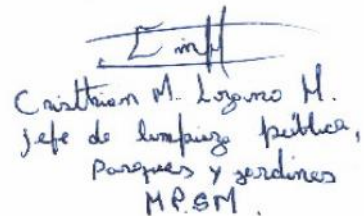 Cristhian M. Lozano H.
Jefe de limpieza pública,
Parques y jardines
MPSM.